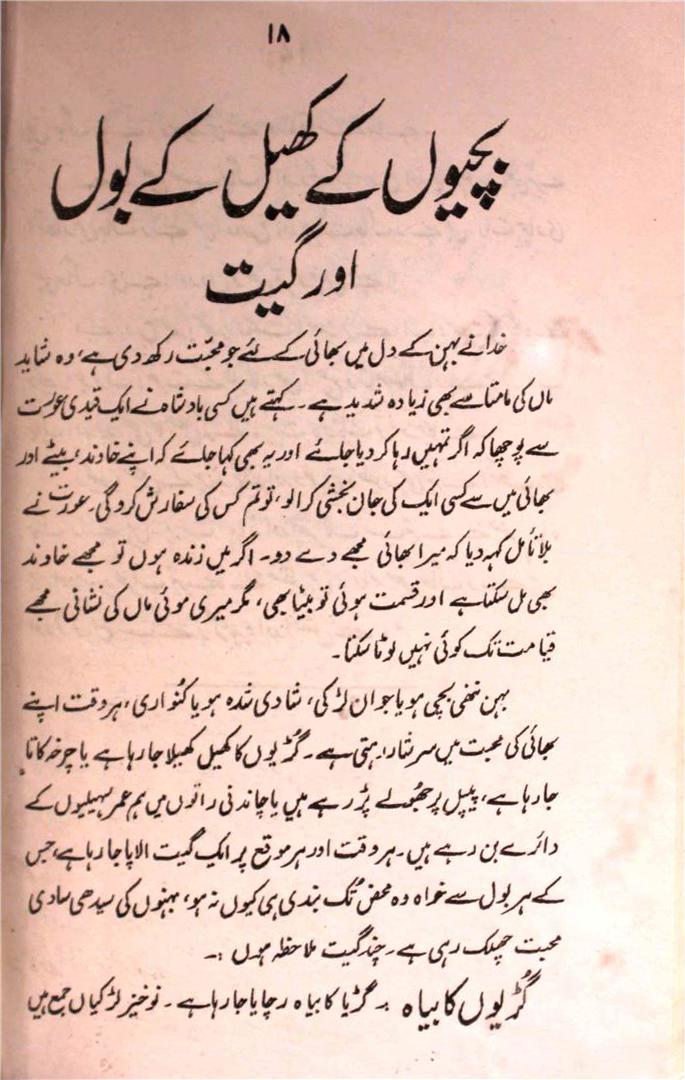 ۱۸
بچیوں کے کھیل کے بول
اور گیت
خدا نے بہن کے دل میں بھائی کے لئے جو محبّت رکھ دی ہے، وہ شاید
ماں کی مامتا سے بھی زیادہ شدید ہے۔ کہتے ہیں کسی بادشاہ نے ایک قیدی عورت
سے پوچھا کہ اگر تمہیں رہا کر دیا جائے اور یہ بھی کہا جائے کہ اپنے خاوند، بیٹے اور
بھائی میں سے کسی ایک کی جان بخشی کرالو، تو تم کس کی سفارش کرو گی۔ عورت نے
بلا تأمل کہہ دیا کہ میرا بھائی مجھے دے دو۔ اگر میں زندہ ہوں تو مجھے خاوند
بھی مل سکتا ہے اور قسمت ہوئی تو بیٹا بھی، مگر میری موئی ماں کی نشانی مجھے
قیامت تک کوئی نہیں لوٹا سکتا۔
بہن ننھی بچی ہو یا جوان لڑکی، شادی شدہ ہو یا کنواری، ہر وقت اپنے
بھائی کی محبت میں سرشار رہتی ہے۔ گڑیوں کا کھیل کھیلا جا رہا ہے یا چرخہ کاتا
جا رہا ہے، پیپل پر جھولے پڑ رہے ہیں یا چاندنی راتوں میں ہم عمر سہیلیوں کے
دائرے بن رہے ہیں۔ ہر وقت اور ہر موقع پر ایک گیت الاپا جا رہا ہے، جس
کے ہر بول سے خواہ وہ محض تُک بندی ہی کیوں نہ ہو، بہنوں کی سیدھی سادی
محبت چھلک رہی ہے۔ چند گیت ملاحظہ ہوں :۔
گُڑیوں کا بیاہ :۔ گڑیا کا بیاہ رچایا جا رہا ہے۔ نوخیز لڑکیاں جمع ہیں